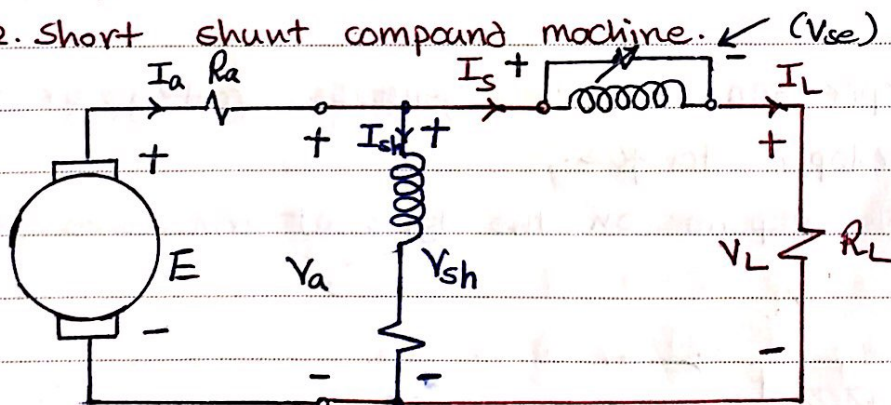 2. Short shunt compound machine. (Vse)
Ia Ra Is + - IL
+ + Ish + +
E Va Vsh VL RL
- - - -